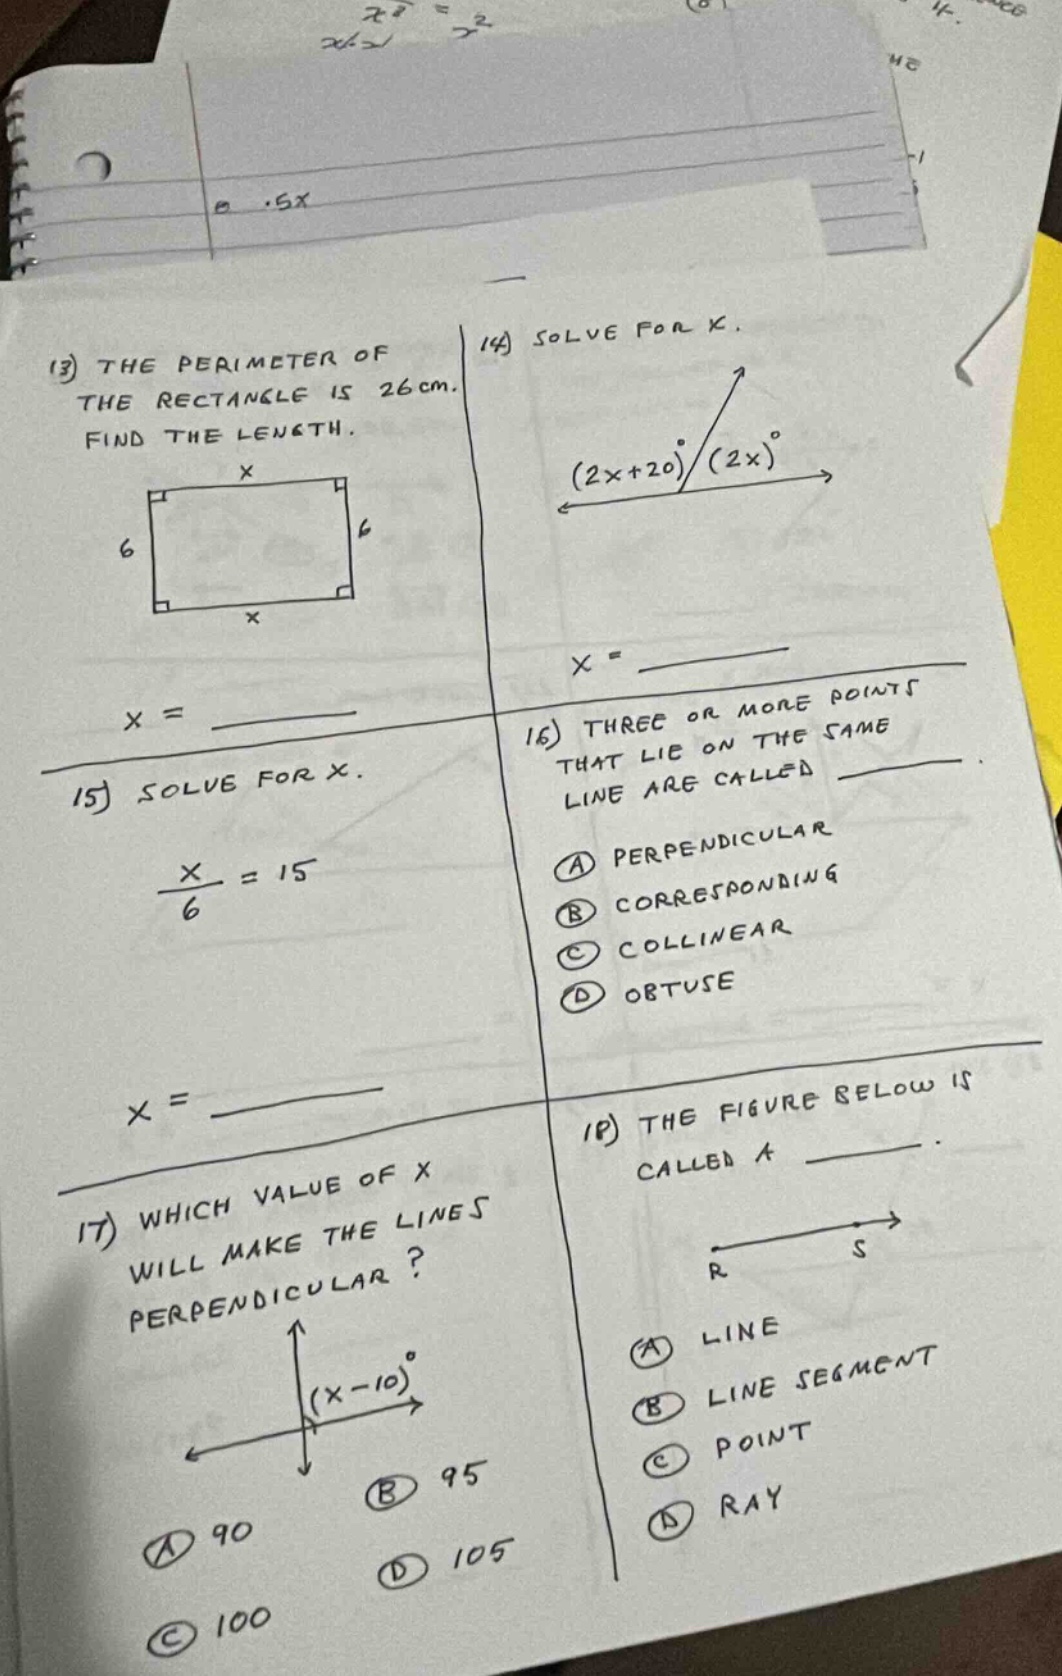 x² = x²
.5x
13) THE PERIMETER OF
THE RECTANGLE IS 26 cm.
FIND THE LENGTH.
x
6
6
x
x =
14) SOLVE FOR X.
(2x+20)° (2x)°
x =
15) SOLVE FOR X.
x
6
= 15
x =
16) THREE OR MORE POINTS
THAT LIE ON THE SAME
LINE ARE CALLED ______.
A PERPENDICULAR
B CORRESPONDING
C COLLINEAR
D OBTUSE
17) WHICH VALUE OF X
WILL MAKE THE LINES
PERPENDICULAR?
(x-10)°
A 90
B 95
C 100
D 105
18) THE FIGURE BELOW IS
CALLED A ______.
R S
A LINE
B LINE SEGMENT
C POINT
D RAY